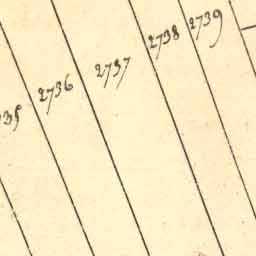 2736
2737
2738
2739